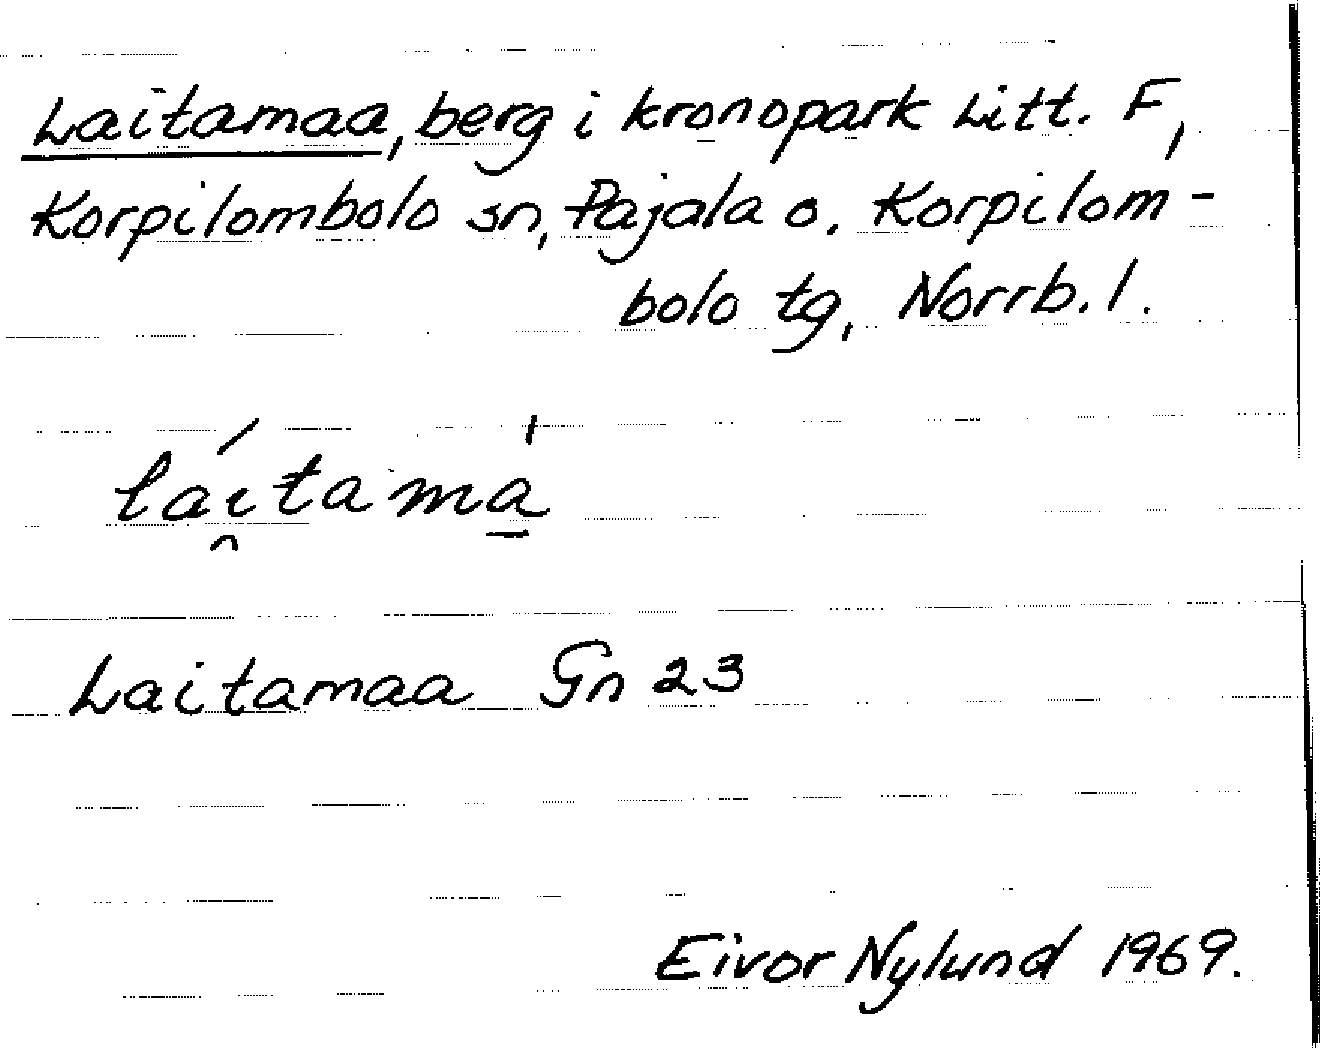 Laitamaa, berg i kronopark Litt. F,
Korpilombolo sn, Pajala o. Korpilom-
bolo tg, Norrb. l.
lái̯tamà̱
Laitamaa Gn 23
Eivor Nylund 1969.